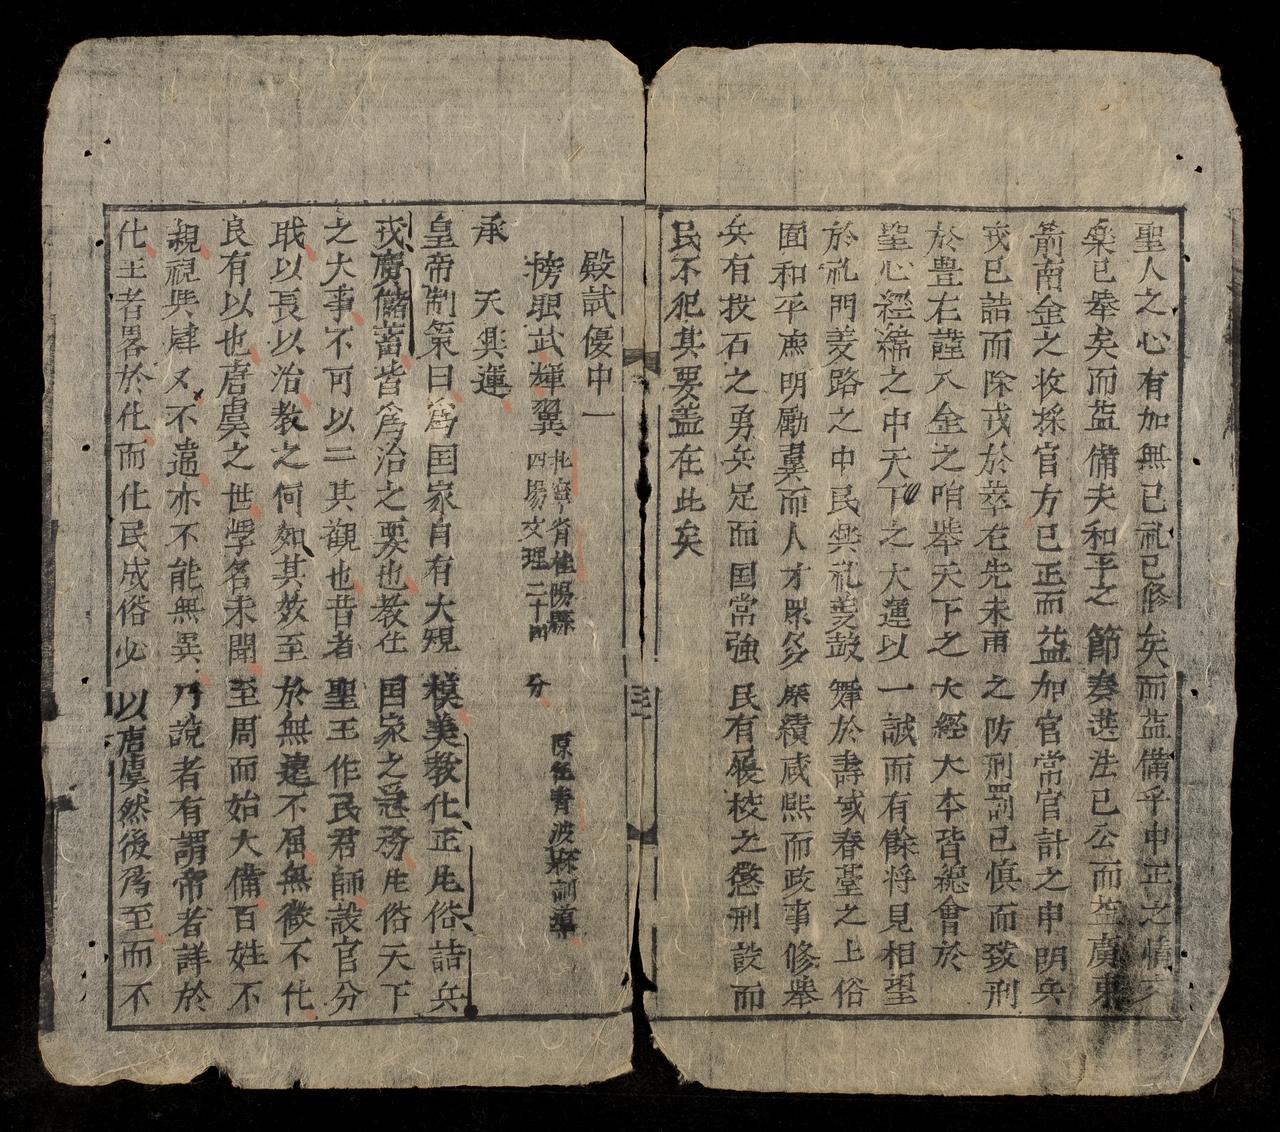 聖人之心有加無已礼已修矣而益備乎中正之情文
樂已举矣而益備夫和平之節奏选法已公而益廣東
箭南金之收採官方已正而益加官常官計之申明兵
戎已詰而除戎於萃在先未雨之防刑罰已慎而致刑
於豊在謹入金之咱举天下之大經大本皆總會於
聖心經綸之中天下之大運以一誠而有餘将見相聖
於礼門義路之中民興礼義鼓舞於壽域春臺之上俗
面和平庶明勵翼而人才众多庶績咸熙而政事修举
兵有投石之勇兵足而国常強民有履校之懲刑設而
民不犯其要盖在此矣
三
殿試優中一
榜眼武輝翼 北寧省桂陽縣 四場文理二十四分 原任青波縣訓導
承
天興運
皇帝制策曰爲国家自有大規模美教化正风俗詰兵
戎廣儲蓄皆爲治之要也教在国家之急務风俗天下
之大事不可以二其觀也昔者聖王作民君師設官分
职以長以治教之何如其效至於無遠不屆無微不化
良有以也唐虞之世學名未聞至周而始大備百姓不
親視與肆又不遑亦不能無異乃說者有謂帝者詳於
化王者畧於化而化民成俗必以唐虞然後爲至而不